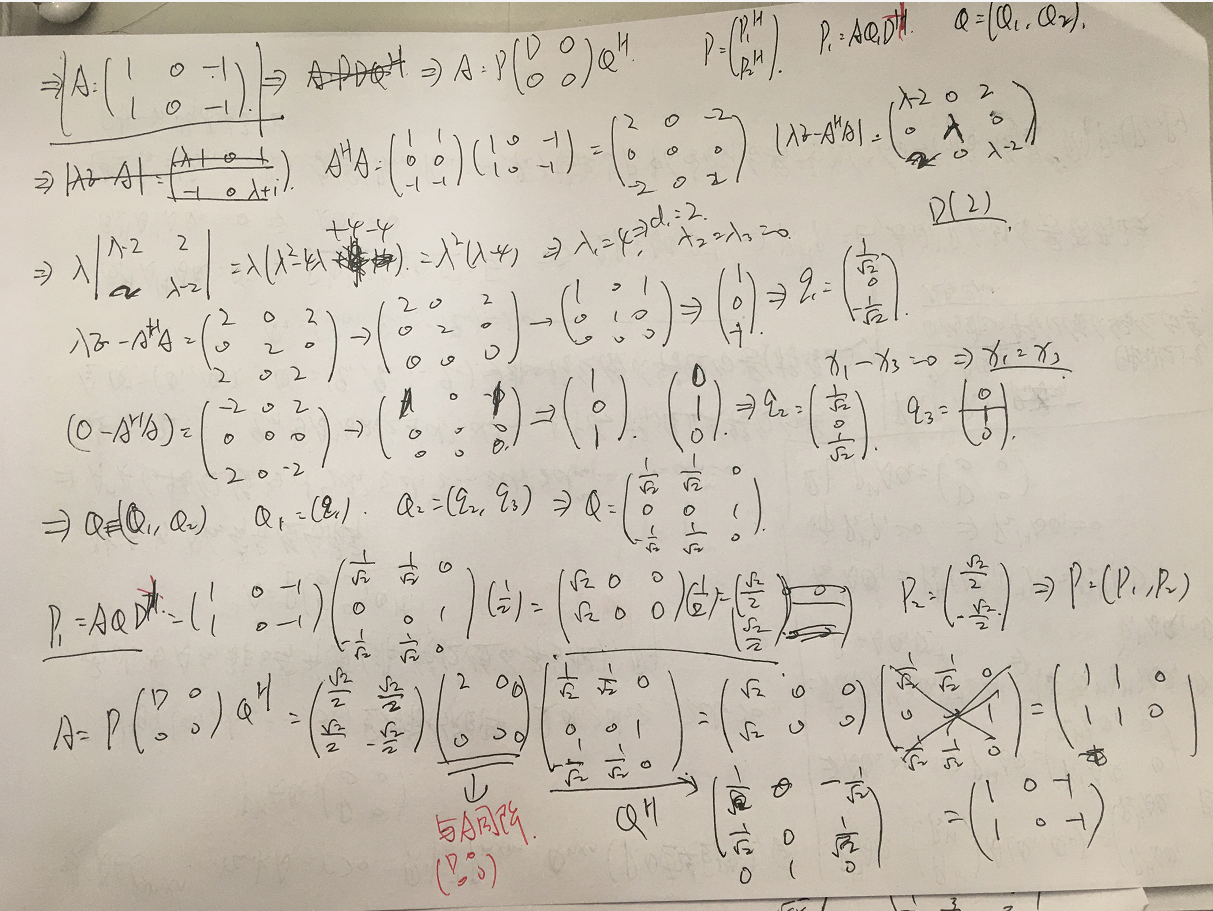 ⇒ A=(1 0 -1; 1 0 -1). ⇒ ~~A=PDQ^H~~ ⇒ A=P(D 0; 0 0)Q^H. P=(P₁^H; P₂^H). P₁=AQ₁D^{-1}. Q=(Q₁, Q₂).
⇒ ~~|λI-A|=(λ-1 0 1; -1 0 λ+1).~~ A^H A=(1 1; 0 0; -1 -1)(1 0 -1; 1 0 -1)=(2 0 -2; 0 0 0; -2 0 2) |λI-A^H A|=(λ-2 0 2; 0 λ 0; 2 0 λ-2)
D(2)
⇒ λ|λ-2 2; 2 λ-2|=λ(λ²-4λ+4-4)=λ²(λ-4) ⇒ λ₁=4, ⇒d₁=2. λ₂=λ₃=0.
λI-A^H A=(2 0 2; 0 2 0; 2 0 2)→(2 0 2; 0 2 0; 0 0 0)→(1 0 1; 0 1 0; 0 0 0)⇒(1; 0; -1).⇒q₁=(1/√2; 0; -1/√2).
x₁-x₃=0 ⇒ x₁=x₃
(0-A^H A)=(-2 0 2; 0 0 0; 2 0 -2)→(1 0 -1; 0 0 0; 0 0 0)⇒(1; 0; 1). (0; 1; 0)⇒q₂=(1/√2; 0; 1/√2). q₃=(0; 1; 0).
⇒ Q=(Q₁, Q₂) Q₁=(q₁). Q₂=(q₂, q₃) ⇒ Q=(1/√2 1/√2 0; 0 0 1; -1/√2 1/√2 0).
P₁=AQD^{-1}=(1 0 -1; 1 0 -1)(1/√2 1/√2 0; 0 0 1; -1/√2 1/√2 0)(1/2)=(√2 0 0; √2 0 0)(1/2)=(√2/2; √2/2) P₂=(√2/2; -√2/2). ⇒ P=(P₁,P₂)
A=P(D 0; 0 0)Q^H=(√2/2 √2/2; √2/2 -√2/2)(2 0 0; 0 0 0)(1/√2 1/√2 0; 0 0 1; -1/√2 1/√2 0)=(√2 0 0; √2 0 0)~~(1/√2 1/√2 0; 0 0 1; -1/√2 1/√2 0)~~=(1 1 0; 1 1 0)
与A同阶.
(D 0; 0 0)
Q^H
(1/√2 0 -1/√2; 1/√2 0 1/√2; 0 1 0)=(1 0 -1; 1 0 -1)